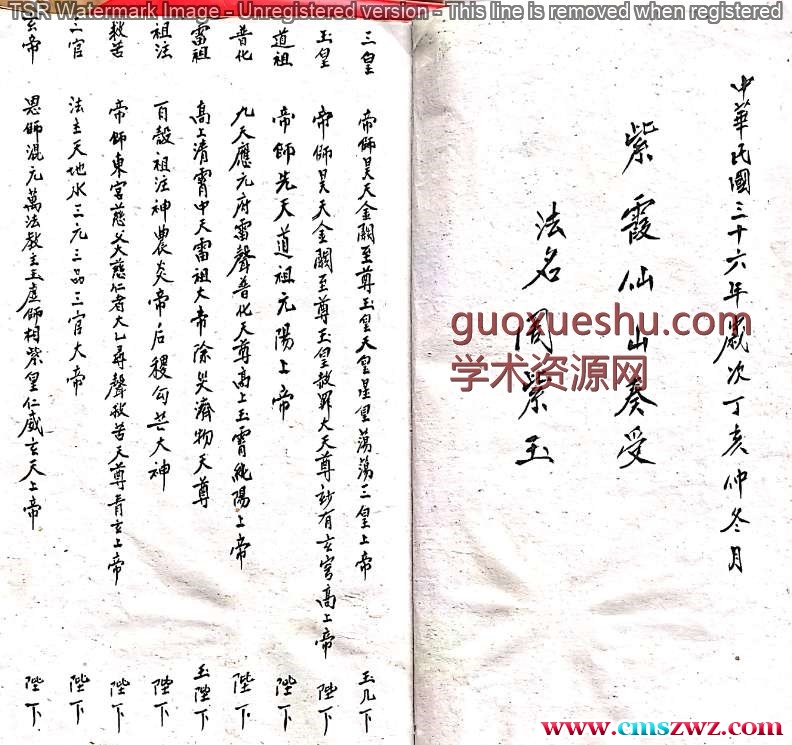 TSR Watermark Image - Unregistered version - This line is removed when registered
中華民國三十六年歲次丁亥仲冬月
紫霞仙山奏受
法名周紫玉
guoxueshu.com
学术资源网
三皇 帝師昊天金闕至尊玉皇天皇星皇蕩蕩三皇上帝 玉几下
玉皇 帝師昊天金闕至尊玉皇赦罪大天尊妙有玄穹高上帝 陛下
道祖 帝師先天道祖元陽上帝 陛下
普化 九天應元府雷聲普化天尊高上玉霄純陽上帝 陛下
雷祖 高上清霄中天雷祖大帝除災濟物天尊 玉陛下
祖注 百穀祖注神農炎帝后稷勾芒大神 陛下
救苦 帝師東宮慈父大慈仁者太乙尋聲救苦天尊青玄上帝 陛下
三官 法主天地水三元三品三官大帝 陛下
玄帝 恩師混元萬法教主玉虛師相紫皇仁威玄天上帝 陛下
www.cmszwz.com